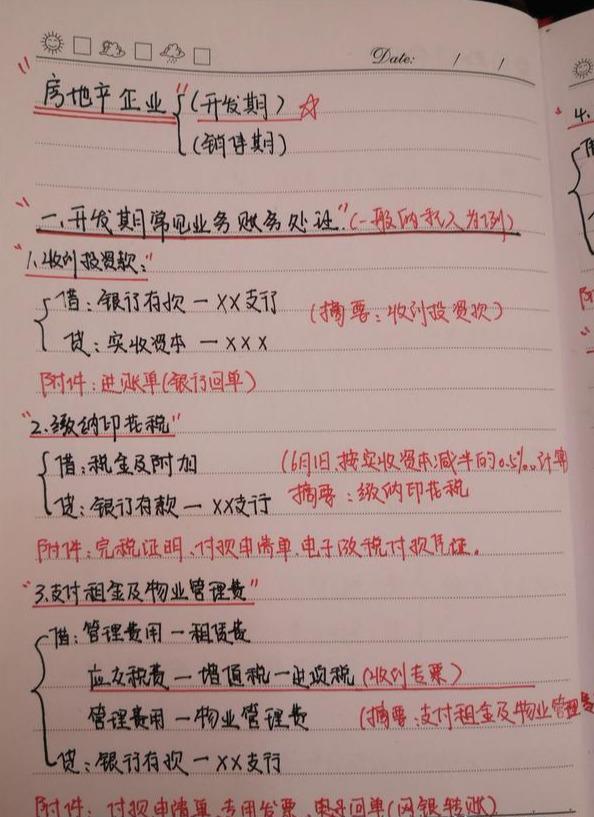 Date: / /
房地产企业 (开发期) ☆
(销售期)
"一.开发期常见业务账务处理."(一般纳税人为例)
"1.收到投资款:"
借:银行存款一XX支行 (摘要:收到投资款)
贷:实收资本 一XXX
附件:进账单(银行回单)
"2.缴纳印花税"
借:税金及附加 (6月1日.按实收资本减半的0.5‰计算
贷:银行存款一XX支行 摘要:缴纳印花税
附件:完税证明、付款申请单、电子缴税付款凭证。
"3.支付租金及物业管理费"
借:管理费用一租赁费
应交税费一增值税一进项税(收到专票)
管理费用一物业管理费 (摘要:支付租金及物业管理费
贷:银行存款一XX支行
附件:付款申请单、专用发票、电子回单(网银转账)
4.
借
附